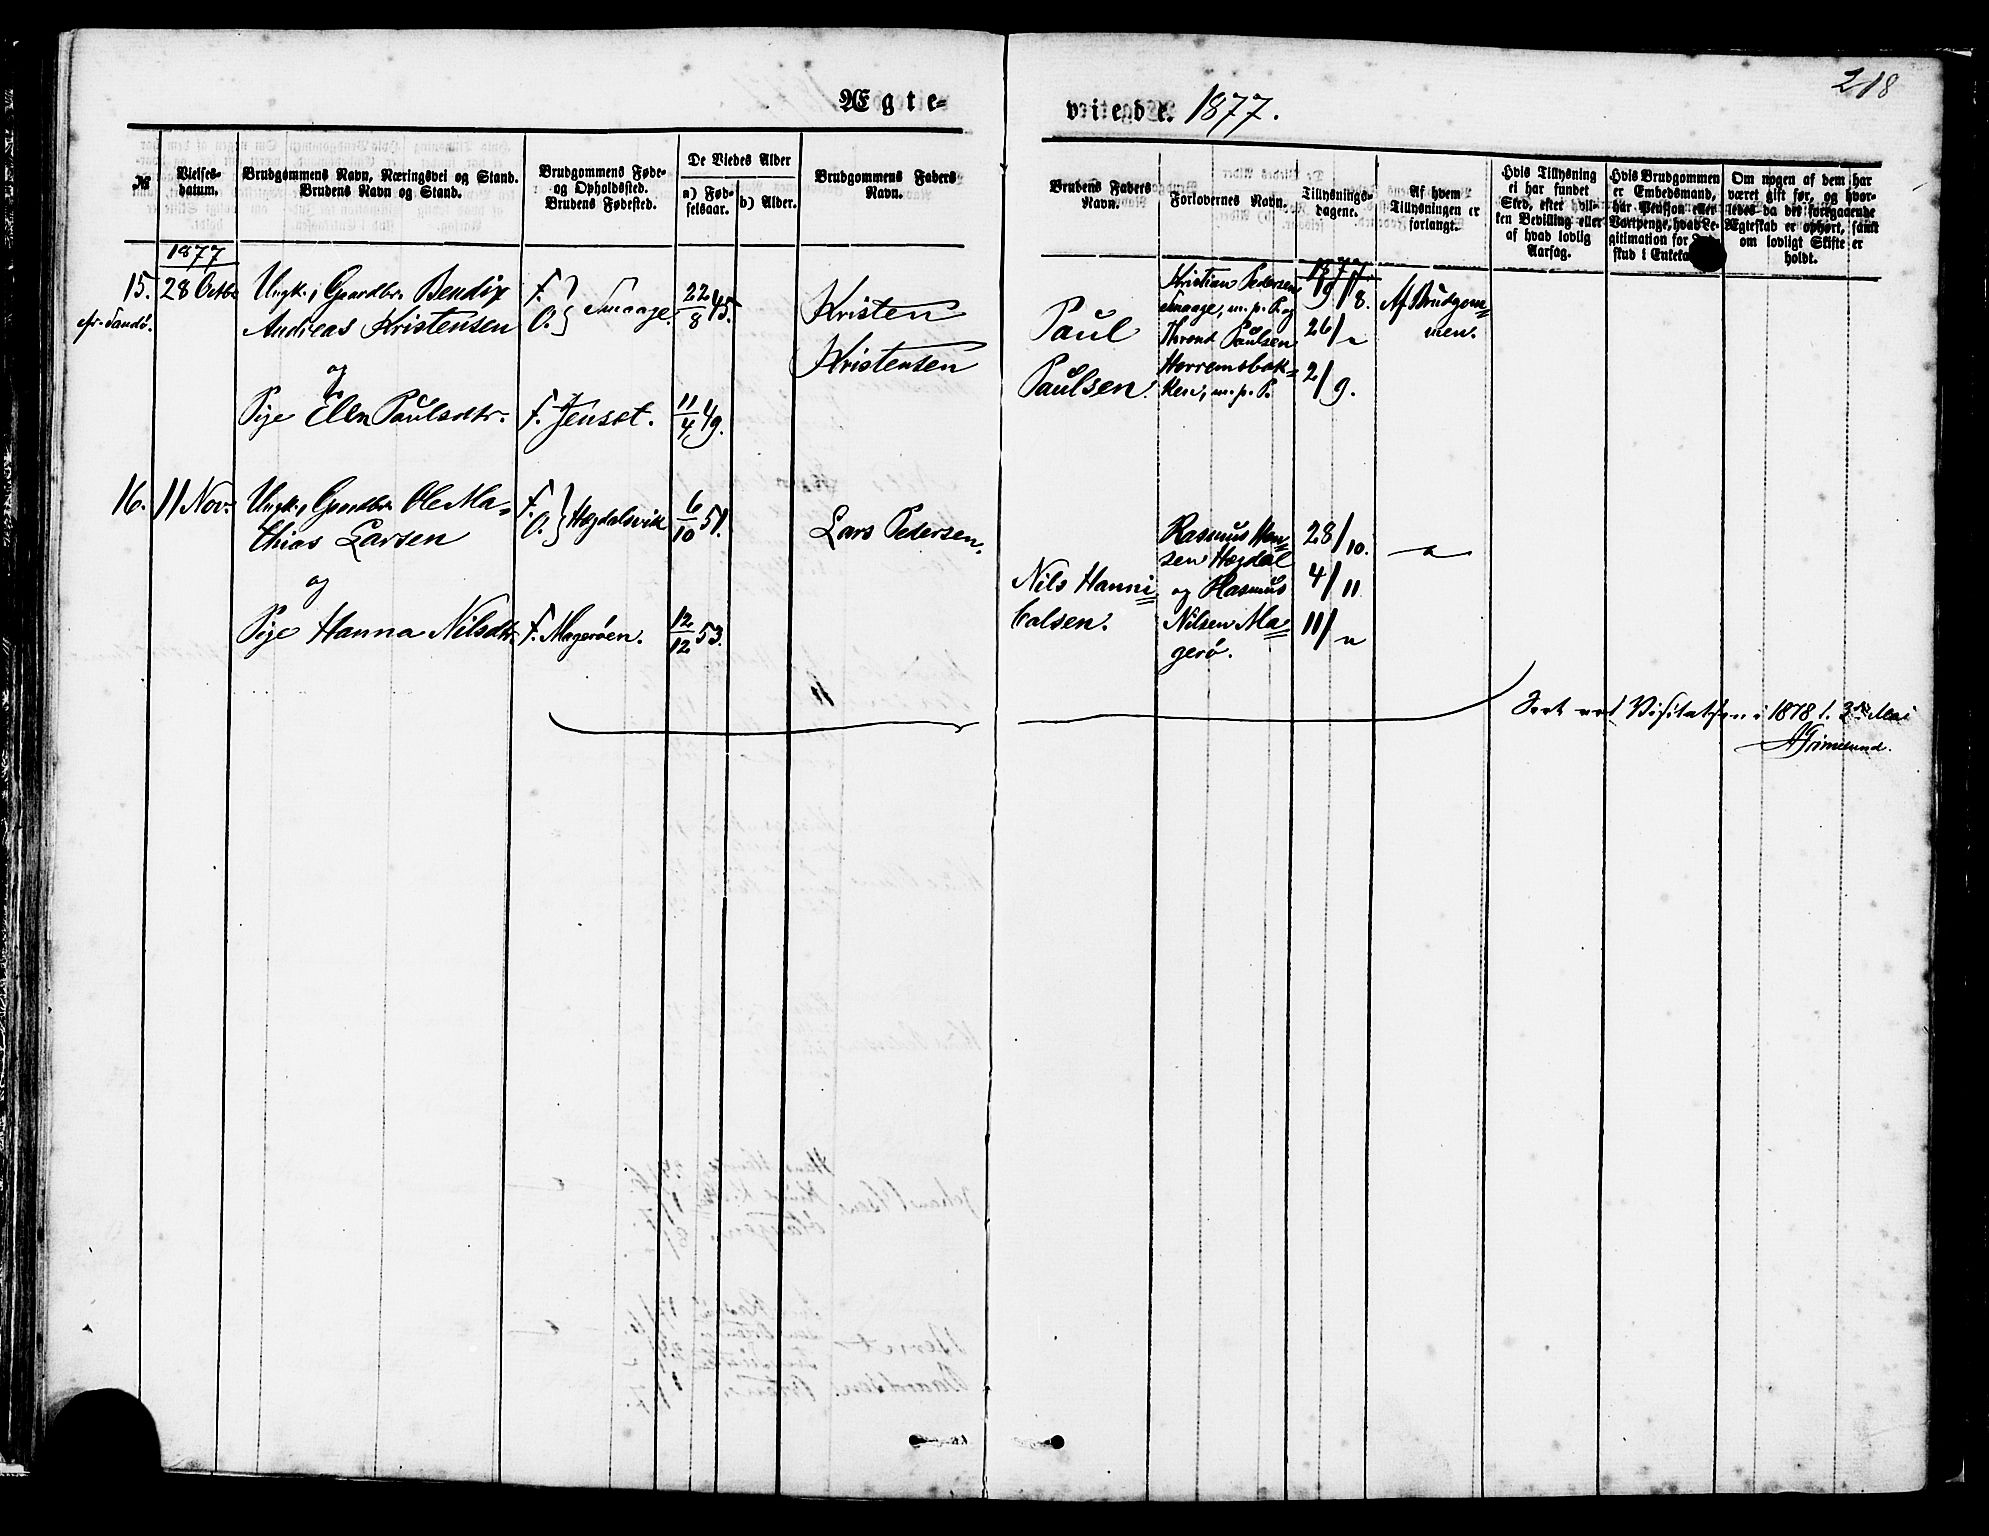 218
Ægte-
viede. 1877.
№
Vielses-
datum.
Brudgommens Navn, Næringsvei og Stand.
Brudens Navn og Stand.
Brudgommens Føde-
og Opholdssted.
Brudens Fødested.
De Viedes Alder
a) Fød-
selsaar.
b) Alder.
Brudgommens Faders
Navn.
Brudens Faders
Navn.
Forlovernes Navn.
Tillysnings-
dagene.
Af hvem
Tillysningen er
forlangt.
Hvis Tillysning
ei har fundet
Sted, efter hvil-
ken Bevilling eller
af hvad lovlig
Aarsag.
Hvis Brudgommen
er Embedsmand,
har Pension eller
Vartpenge, hvad Le-
gitimation for
skud i Enkeka
Om nogen af dem har
været gift før, og hvor-
ledes da det foregaaende
Ægteskab er ophørt, samt
om lovligt Skifte er
holdt.
1877
15. 28 Octbr
Sandø.
Ungk., Gaardbr. Bendix
Andreas Kristensen
og
Pige Ellen Paulsdtr.
F.
O. } Smaage.
F. Jenset.
22/8 45.
11/4 49.
Kristen
Kristensen
Paul
Paulsen.
Kristian Pedersen
Smaage, m. p. P. og
Thrond Paulsen
Horremsbak=
ken, m. p. P.
1877
19/8.
26/"
2/9.
Af Brudgom=
men.
16. 11 Nov.
Ungk., Gaardbr. Ole Ma=
thias Larsen
og
Pige Hanna Nilsdtr.
F.
O. } Hægdalsvik
F. Magerøen.
6/10 51.
12/12 53.
Lars Pedersen.
Nils Hanni=
balsen.
Rasmus Han=
sen Hægdal
og Rasmus
Nilsen Ma=
gerø.
28/10.
4/11
11/"
"
Seet ved Visitatsen i 1878 d. 3die Mai
AGrimelund.